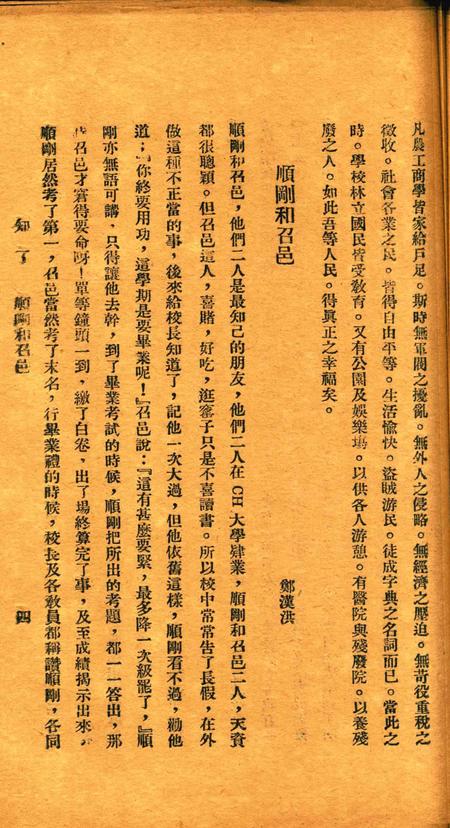 凡農工商學皆家給戶足。斯時無軍閥之擾亂。無外人之侵略。無經濟之壓迫。無苛役重稅之
徵收。社會各業之民。皆得自由平等。生活愉快。盜賊游民。徒成字典之名詞而已。當此之
時。學校林立國民皆受敎育。又有公園及娛樂塲。以供各人游憩。有醫院與殘廢院。以養殘
廢之人。如此吾等人民。得眞正之幸福矣。
順剛和召邑
鄭漢洪
順剛和召邑,他們二人是最知己的朋友,他們二人在CH大學肄業,順剛和召邑二人,天資
都很聰穎。但召邑這人,喜賭,好吃,逛窰子只是不喜讀書。所以校中常常吿了長假,在外
做這種不正當的事,後來給校長知道了,記他一次大過,但他依舊這樣,順剛看不過,勸他
道;『你終要用功,這學期是要畢業呢!』召邑說:『這有甚麼要緊,最多降一次級罷了,』順
剛亦無語可講,只得讓他去幹,到了畢業考試的時候,順剛把所出的考題,都一一答出,那
召邑才窘得要命呀!單等鐘頭一到,繳了白卷,出了塲終算完了事,及至成績揭示出來,
順剛居然考了第一,召邑當然考了末名,行畢業禮的時候,校長及各敎員都稱讚順剛,各同
知了 順剛和召邑 四